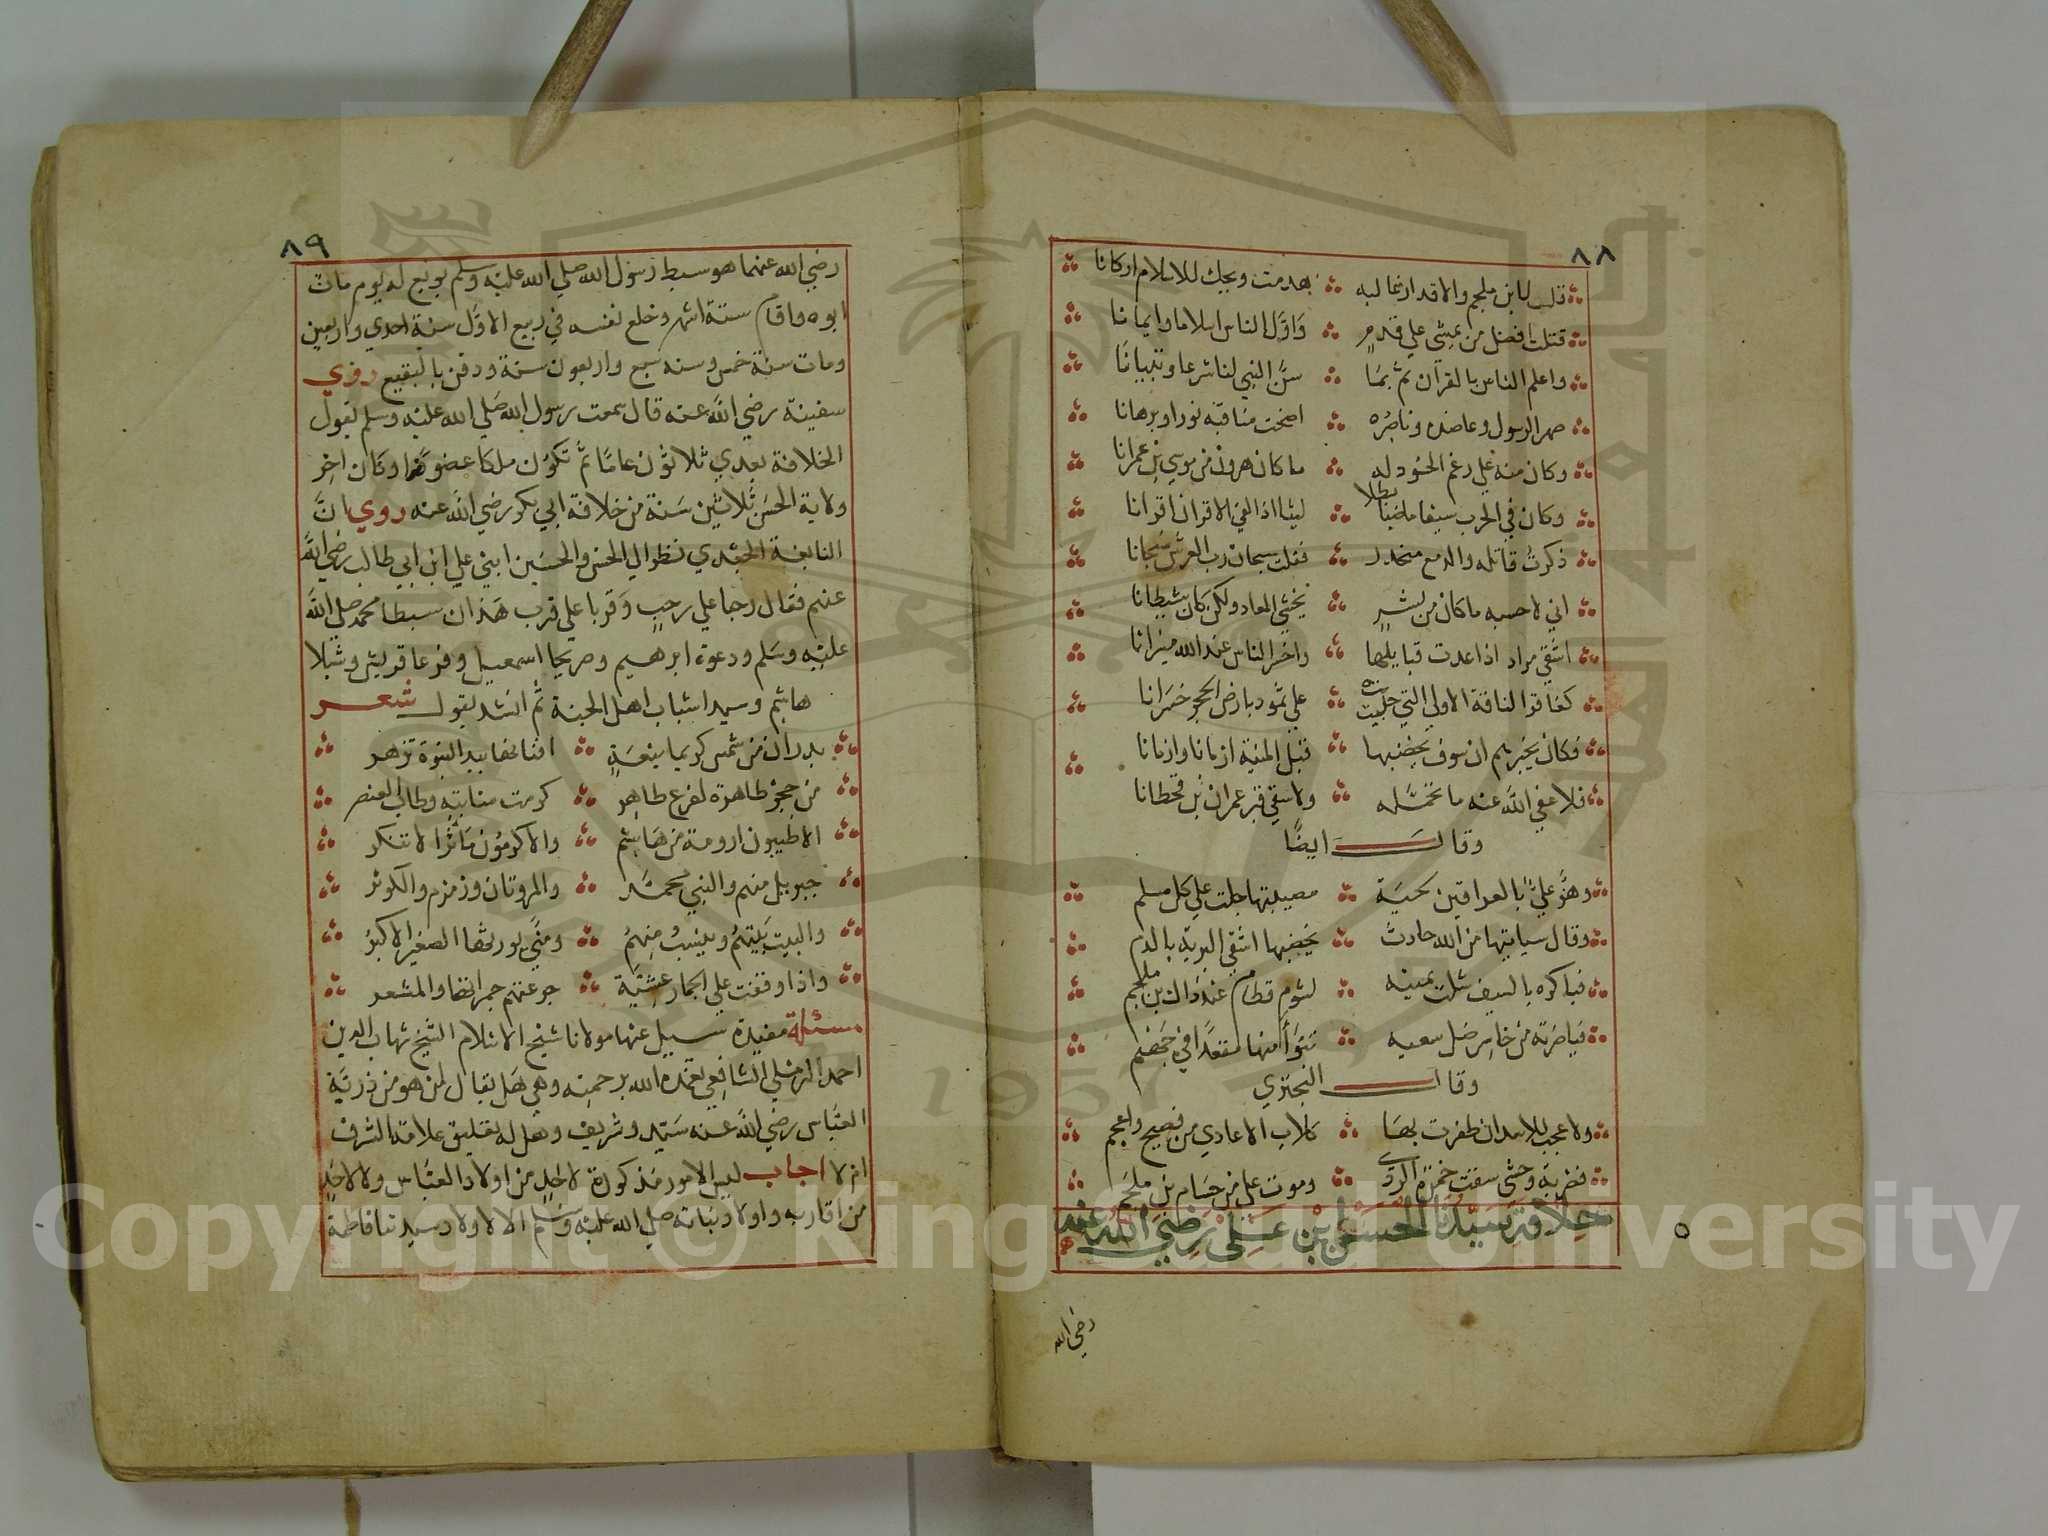 ٨٨
قل لابن ملجم والاقدار غالبه هدمت ويحك للاسلام اركانا
قتلت افضل من يمشي علي قدم واوّل الناس اسلاما وايمانا
واعلم الناس بالقرآن ثمّ بما سنّ النبي لنا شرعا وتبيانا
صهر الرسول وعاضده وناصره اضحت مناقبه نورا وبرهانا
وكان منه علي رغم الحسود له ما كان هرون من موسي بن عمرانا
وكان في الحرب سيفا ماضيا بطلا ليثا اذا لقي الاقران اقرانا
ذكرت قاتله والدمع منحدر فقلت سبحان رب العرش سبحانا
اني لاحسبه ما كان من بشر يخشي المعاد ولكن كان شيطانا
اشقي مراد اذا عدت قبايلها واخسر الناس عند الله ميزانا
كعاقر الناقة الاولي التي جلبت علي ثمود بارض الحجر خسرانا
فكان يخبرهم ان سوف يخضبها قبل المنية ازمانا وازمانا
فلا عفي الله عنه ما تحمّله ولا سقي قبر عمران بن قحطانا
وقال ايضًا
وهزّ عليّ بالعراقين لحية مصيبتها جلت علي كل مسلم
وقال سياتيها من الله حادث يخضبها اشقي البرية بالدم
فباكره بالسيف شلت يمينه لشوم قطام عند ذاك بن ملجم
فيا ضربة من خاسر ضل سعيه تبوّأ منها مقعدًا في جهنم
وقال البحتري
ولا عجب للاسد ان ظفرت بها كلاب الاعادي من فصيح واعجم
فضربة وحشي سقت حمزة الردي وموت علي من حسام بن ملجم
خلافة سيدنا الحسن ابن علي رضي الله عنه
رضي الله
٨٩
رضي الله عنهما هو سبط رسول الله صلي الله عليه وسلم بويع له يوم مات
ابوه واقام ستة اشهر وخلع نفسه في ربيع الاوّل سنة احدي واربعين
ومات سنة خمس وسنه سبع واربعون سنة ودفن بالبقيع روي
سفينة رضي الله عنه قال سمعت رسول الله صلي الله عليه وسلم يقول
الخلافة بعدي ثلاثون عامًا ثمّ تكون ملكا عضوضا وكان اخر
ولاية الحسن ثلاثين سنة من خلافة ابي بكر رضي الله عنه روي انّ
النابغة الجعدي نظر الي الحسن والحسين ابني علي ابن ابي طالب رضي الله
عنهم فقال رحبا علي رحب وقربا علي قرب هذان سبطا محمد صلي الله
عليه وسلم ودعوة ابرهيم وصريحا اسمعيل وفرعا قريش وشبلا
هاشم وسيدا شباب اهل الجنة ثم انشد يقول شعر
بدران من شمس كريما نبعة افنا لها بيد النبوة تزهر
من حجر طاهرة لفرع طاهر كرمت منابته وطاب العنصر
الاطيبون ارومة من هاشم والاكرمون مآثرا لا تنكر
جبريل منهم والنبي محمد والمروتان وزمزم والكوثر
والبيت بيتهم وينسب منهم ومني يورثها الصغير الاكبر
واذا وقفت علي الجمار عشية جمرتهم جمراتها والمشعر
مسئلة مفيدة سييل عنها مولانا شيخ الاسلام الشيخ شهاب الدين
احمد الرملي الشافعي تغمده الله برحمته وهي هل يقال لمن هو من ذرية
العبّاس رضي الله عنه سيد وشريف وهل له تعليق علامة الشرف
ام لا اجاب ليس الامور مذكورة لاحد من اولاد العبّاس ولا لاحد
من اقاربه واولاد بناته صلي الله عليه وسلم الا لاولاد سيدتنا فاطمة
Copyright © King Saud University
1957